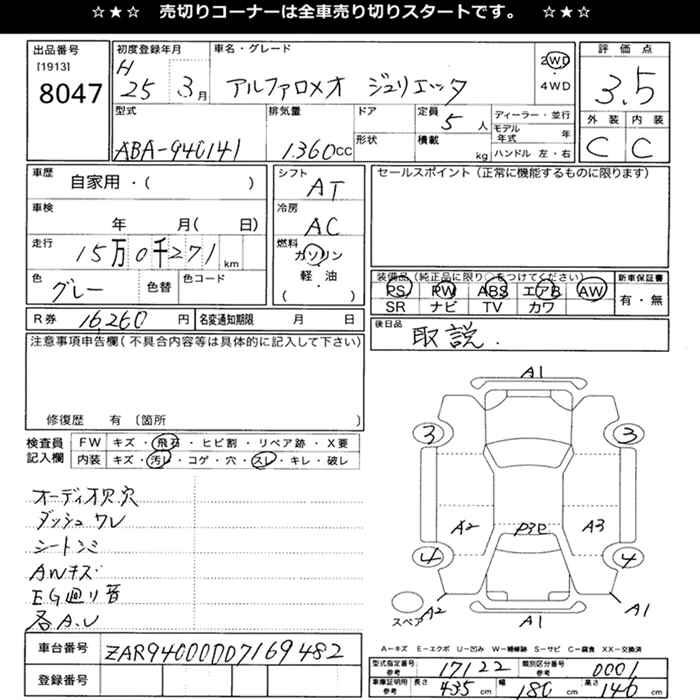 ☆★☆ 売切りコーナーは全車売り切りスタートです。 ☆★☆
出品番号
[1913]
8047
初度登録年月
H
25 3月
車名・グレード
アルファロメオ ジュリエッタ
2WD
4WD
評価点
3.5
外装 内装
C C
型式
ABA-940141
排気量
1360cc
ドア
形状
定員
5人
積載
kg
ディーラー・並行
モデル年式 年
ハンドル 左・右
車歴
自家用・( )
車検
年 月( 日)
走行
15万0千271km
色
グレー
色替
色コード
シフト
AT
冷房
AC
燃料
ガソリン
軽・油
( )
セールスポイント(正常に機能するものに限ります)
装備品(純正品に限り○をつけてください)
PS PW ABS エアB AW
SR ナビ TV カワ
新車保証書
有・無
R券 16260円
名変通知期限 月 日
後日品
取説.
注意事項申告欄(不具合内容等は具体的に記入して下さい)
修復歴 有 〔箇所
検査員
記入欄
FW キズ・飛石・ヒビ割・リペア跡・X要
内装 キズ・汚レ・コゲ・穴・スレ・キレ・破レ
オーディオ爪穴
ダッシュワレ
シートシミ
AWキズ
EG廻り音
各A.U
A1
3 3
A2 P3P A3
4 4
スペア
A2 A1 A1
A－キズ E－エクボ U－凹み W－補修跡 S－サビ C－腐食 XX－交換済
車台番号
ZAR94000007169482
登録番号
型式指定番号
参考
17122
類別区分番号
参考
0001
車庫証明用
参考
長さ 435cm 幅 180cm 高さ 146cm